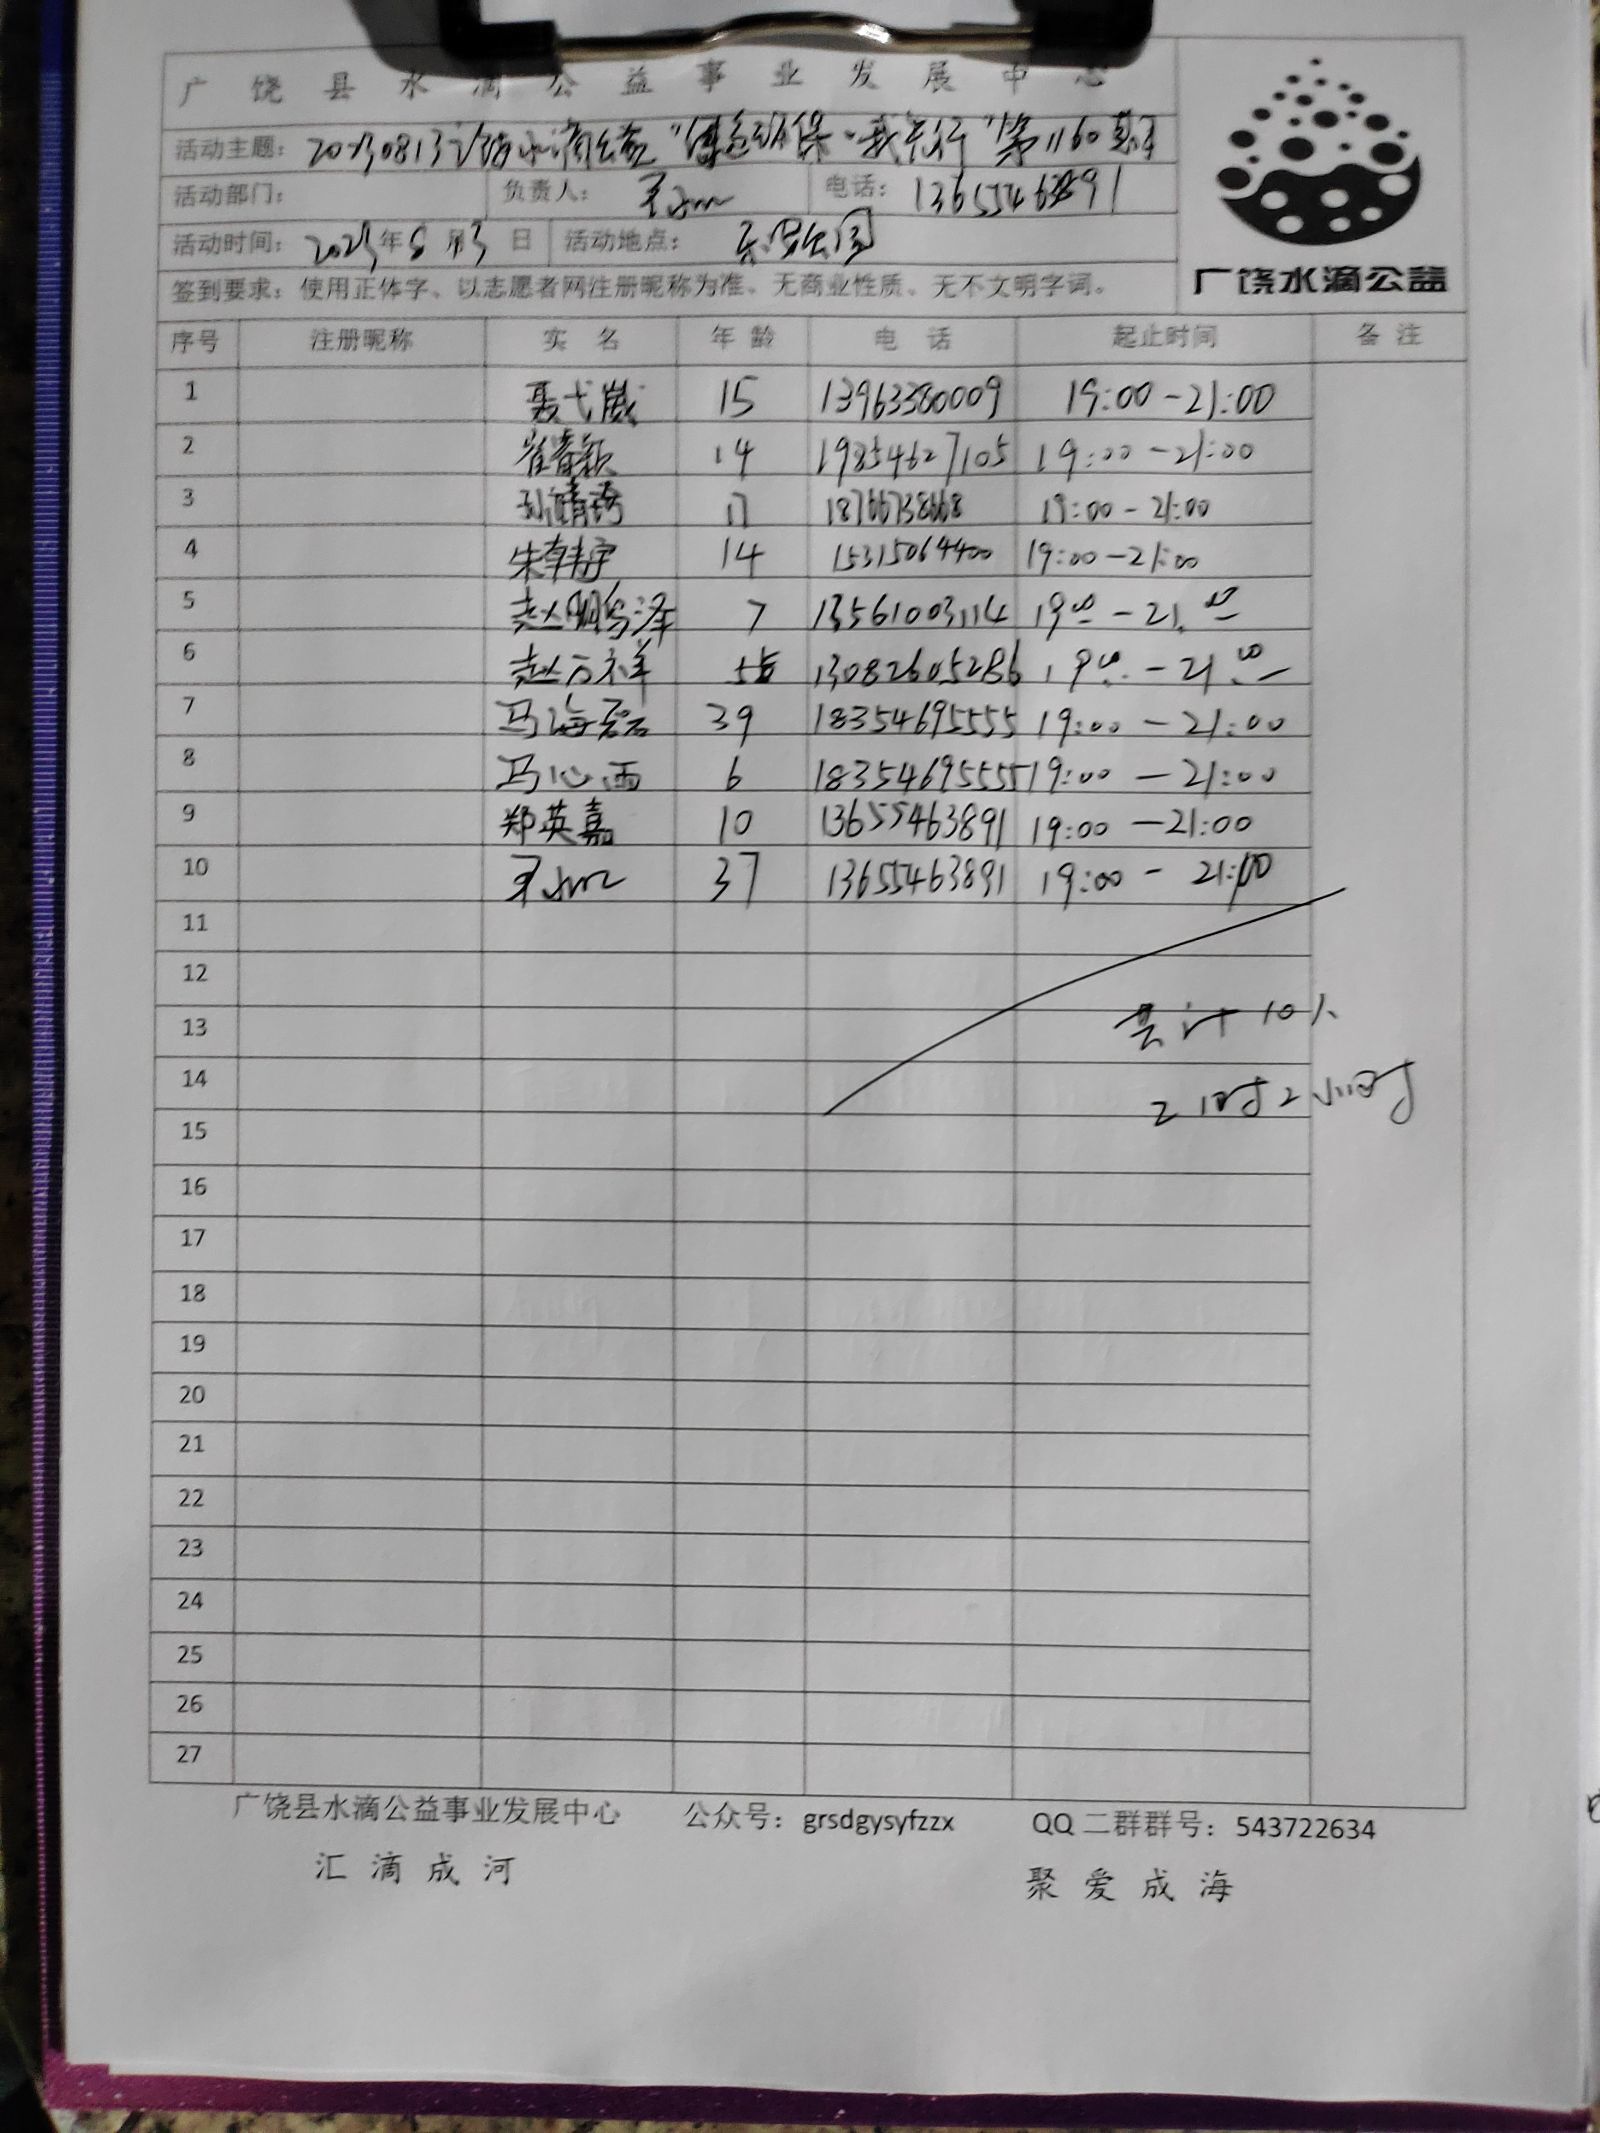 广饶县水滴公益事业发展中心
活动主题: 20230813 水滴公益" 环保·我先行"第1160期
活动部门: 负责人: 电话: 13655463891
活动时间: 2023年8月13日 活动地点: 乐安公园
签到要求: 使用正体字、以志愿者网注册昵称为准、无商业性质、无不文明字词。
广饶水滴公益
序号 注册昵称 实名 年龄 电话 起止时间 备注
1 聂弋崴 15 13963380009 19:00-21:00
2 崔睿颖 14 19854627105 19:00-21:00
3 孙靖 17 18766738668 19:00-21:00
4 朱韩宇 14 15315064400 19:00-21:00
5 赵明泽 7 13561003114 19:00-21:00
6 赵方祥 13082605286 19:00-21:00
7 马海磊 39 18354695555 19:00-21:00
8 马心雨 6 18354695555 19:00-21:00
9 郑英嘉 10 13655463891 19:00-21:00
10 37 13655463891 19:00-21:00
11
12
13 共计10人
14
15 工时2小时
16
17
18
19
20
21
22
23
24
25
26
27
广饶县水滴公益事业发展中心 公众号: grsdgysyfzzx QQ二群群号: 543722634
汇滴成河 聚爱成海